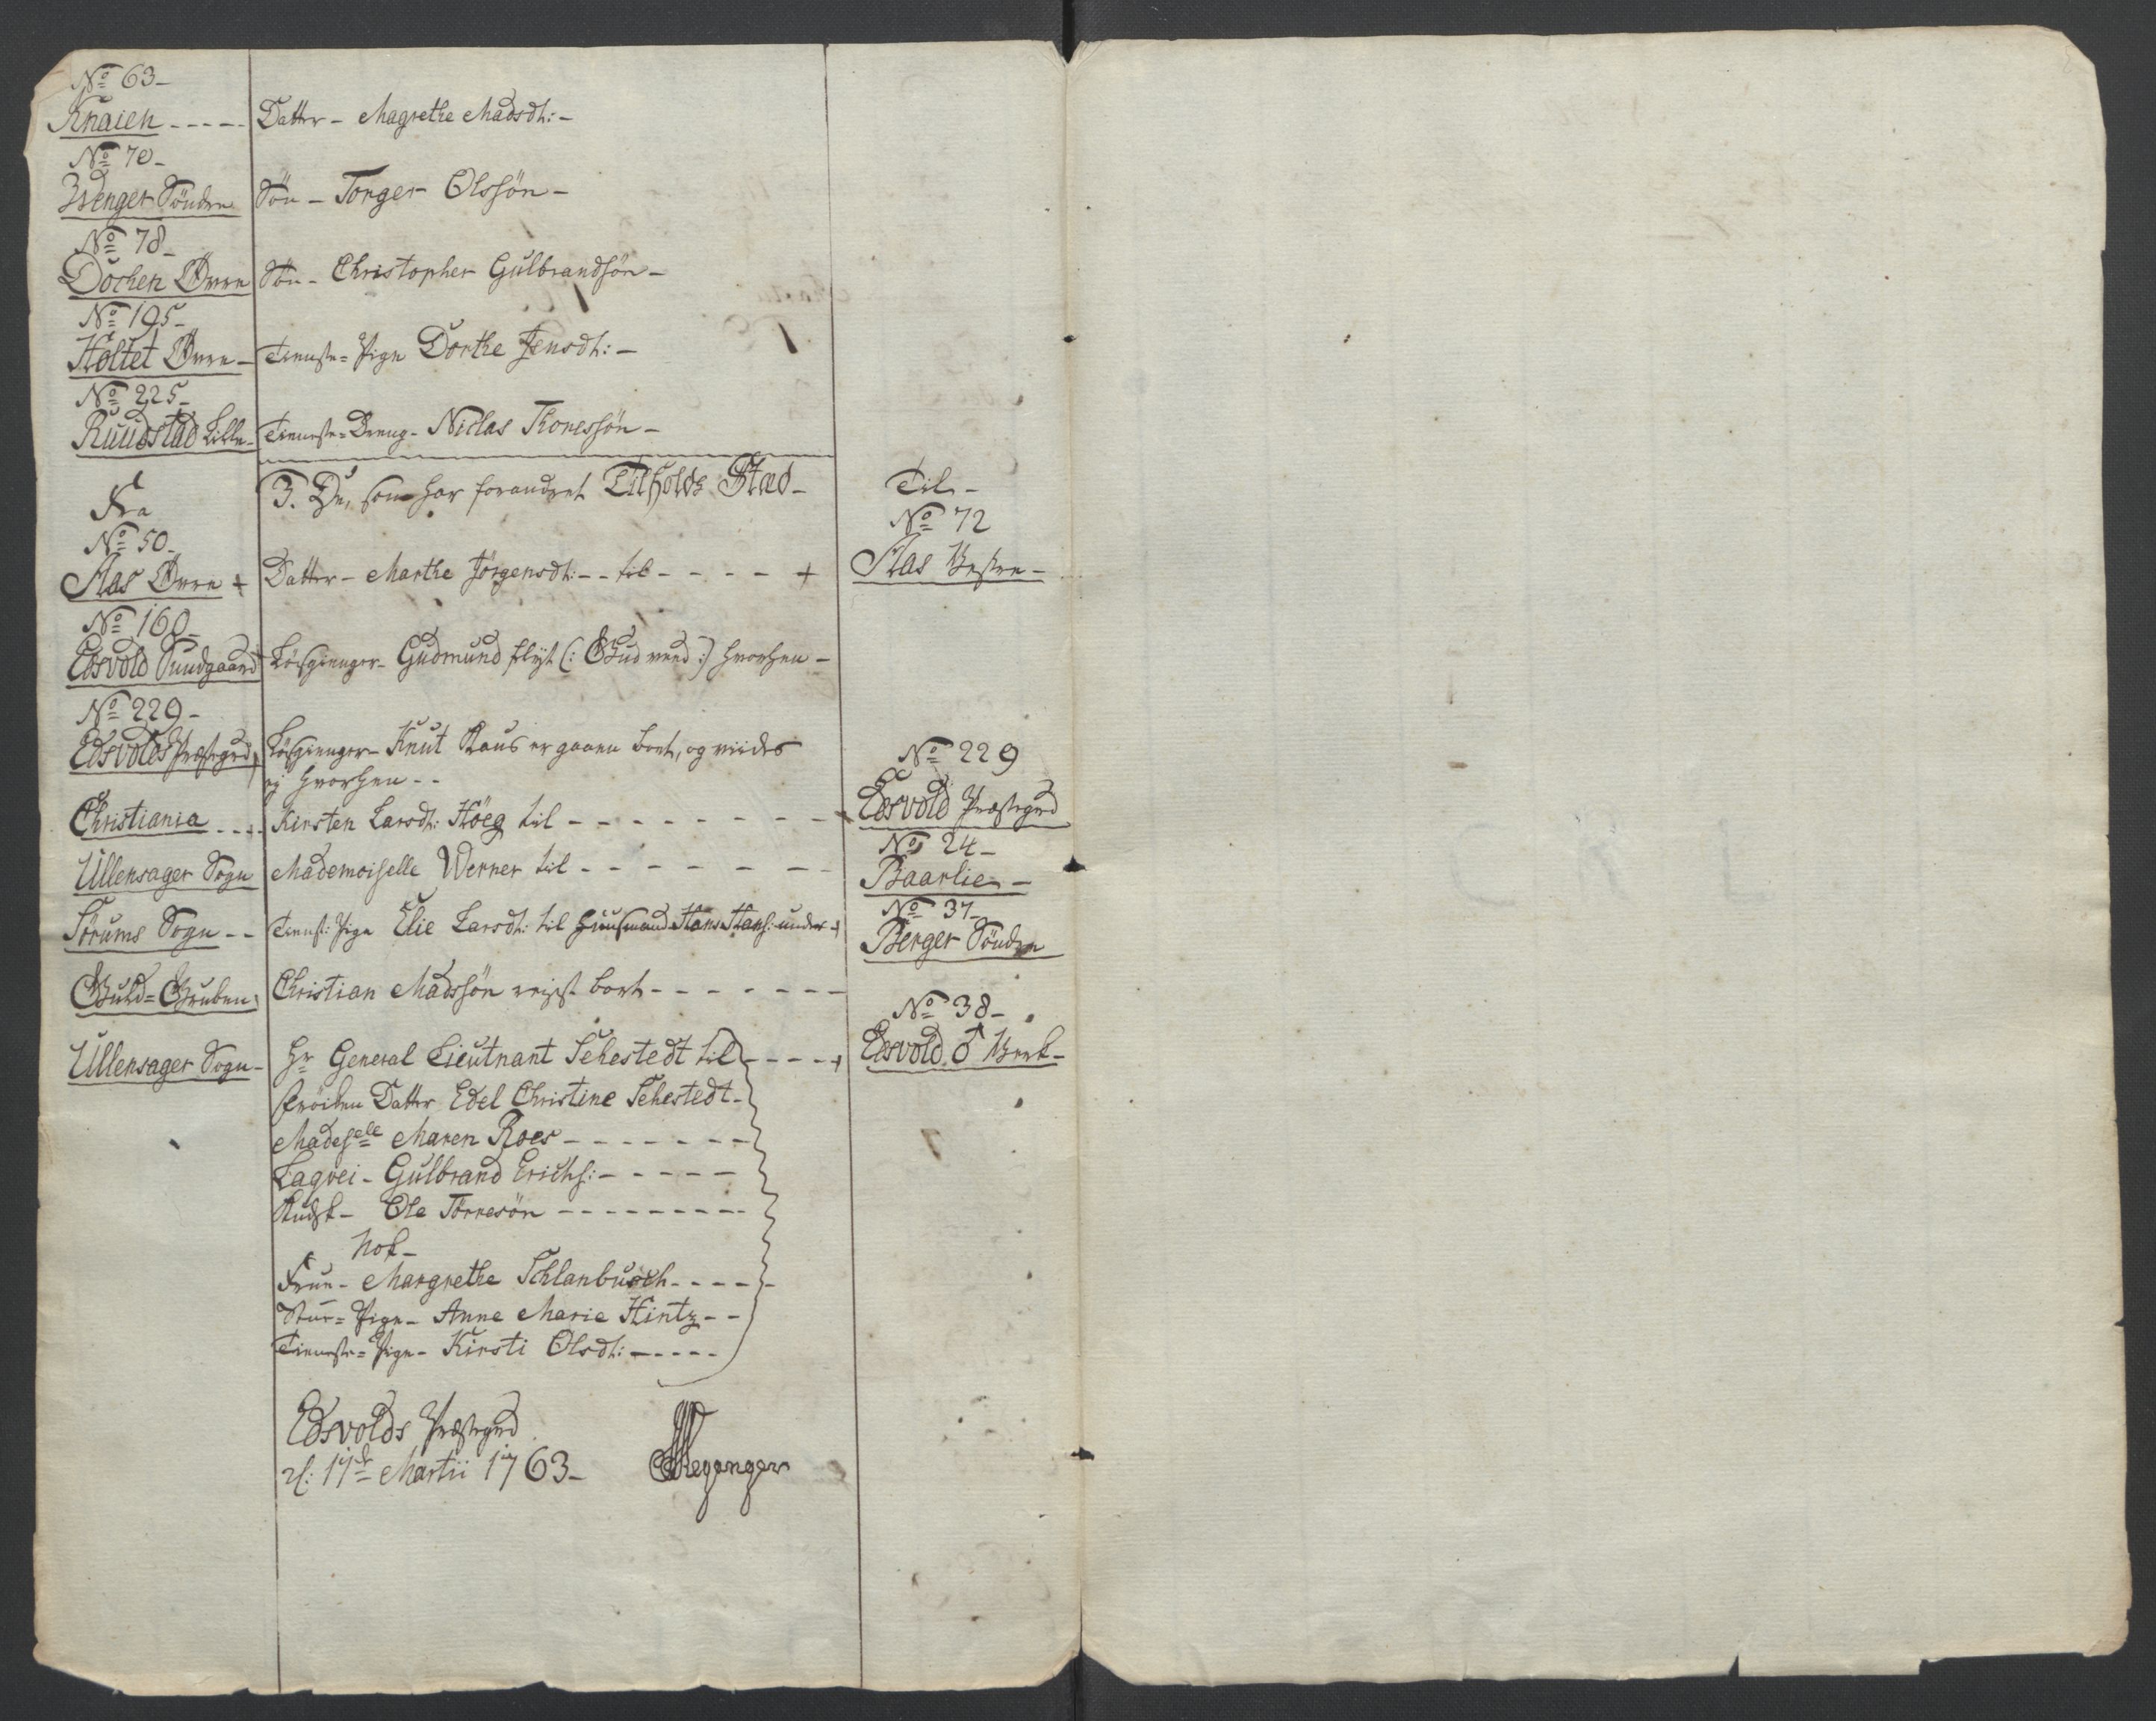 No 63-
Knaien - - - - Datter - Magrethe Madsdt: -
No 70-
Wenger Söndre Sön - Torger Olssön -
No 78-
Dochen Øvre Sön - Christopher Gulbrandsön -
No 195-
Holtet Øvre - Tieneste=Pige Dorthe Jensdt: -
No 225-
Ruudstad Lille - Tieneste=Dreng - Niclas Thoressön -
Fra 3. De, som har forandret Tilholds Stad - Til -
No 50- No 72
Aas Øvre + Datter - Marthe Jörgensdt: - - til - - - - + Aas Vestre -
No 160-
Edsvold Sundgaard Løsgienger - Gudmund flyt (: Gud veed :) hvorhen -
No 229-
Edsvolds Præstegrd Løsgienger - Knut Raus er gaaen bort, og viides
ej hvorhen - -
No 229
Christiania - - - Kirsten Larsdt: Höeg til - - - - - - - - Edsvold Præstegrd
No 24-
Ullensager Sogn Mademoiselle Werner til - - - - - - - Baarlie -
No 37-
Sörums Sogn - - Tienst: Pige Elie Larsdt: til Huusmand Hans Hans: under + Berger Söndre
Guld=Gruben Christian Madssön reijst bort - - - - - - -
No 38-
Ullensager Sogn - Hr General Lieutnant Sehestedt til - - - - + Edsvold ♂ Verk -
Fröiken Datter Edel Christine Sehestedt -
Madeselle Maren Roes - - - - - - -
Laqvei - Gulbrand Erichs: - - - - -
Kudsk - Ole Törresön - - - - - - - - -
Nok -
Frue - Margrethe Schlanbusch - - - - -
Stue=Pige - Anne Marie Hintz - -
Tieneste=Pige - Kirsti Olsdt: - - - - -
Edsvolds Præstegrd
d: 17de Martii 1763 -